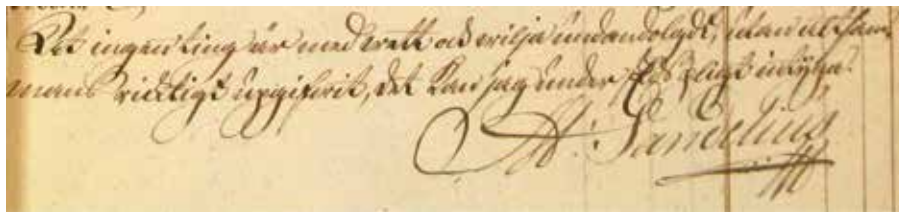 Att ingenting är med wett och wilja undandolgdt, utan alt sam-
mans ricktigt upgifwit, det kan jag under Eds pligt intyga.
Sandelius